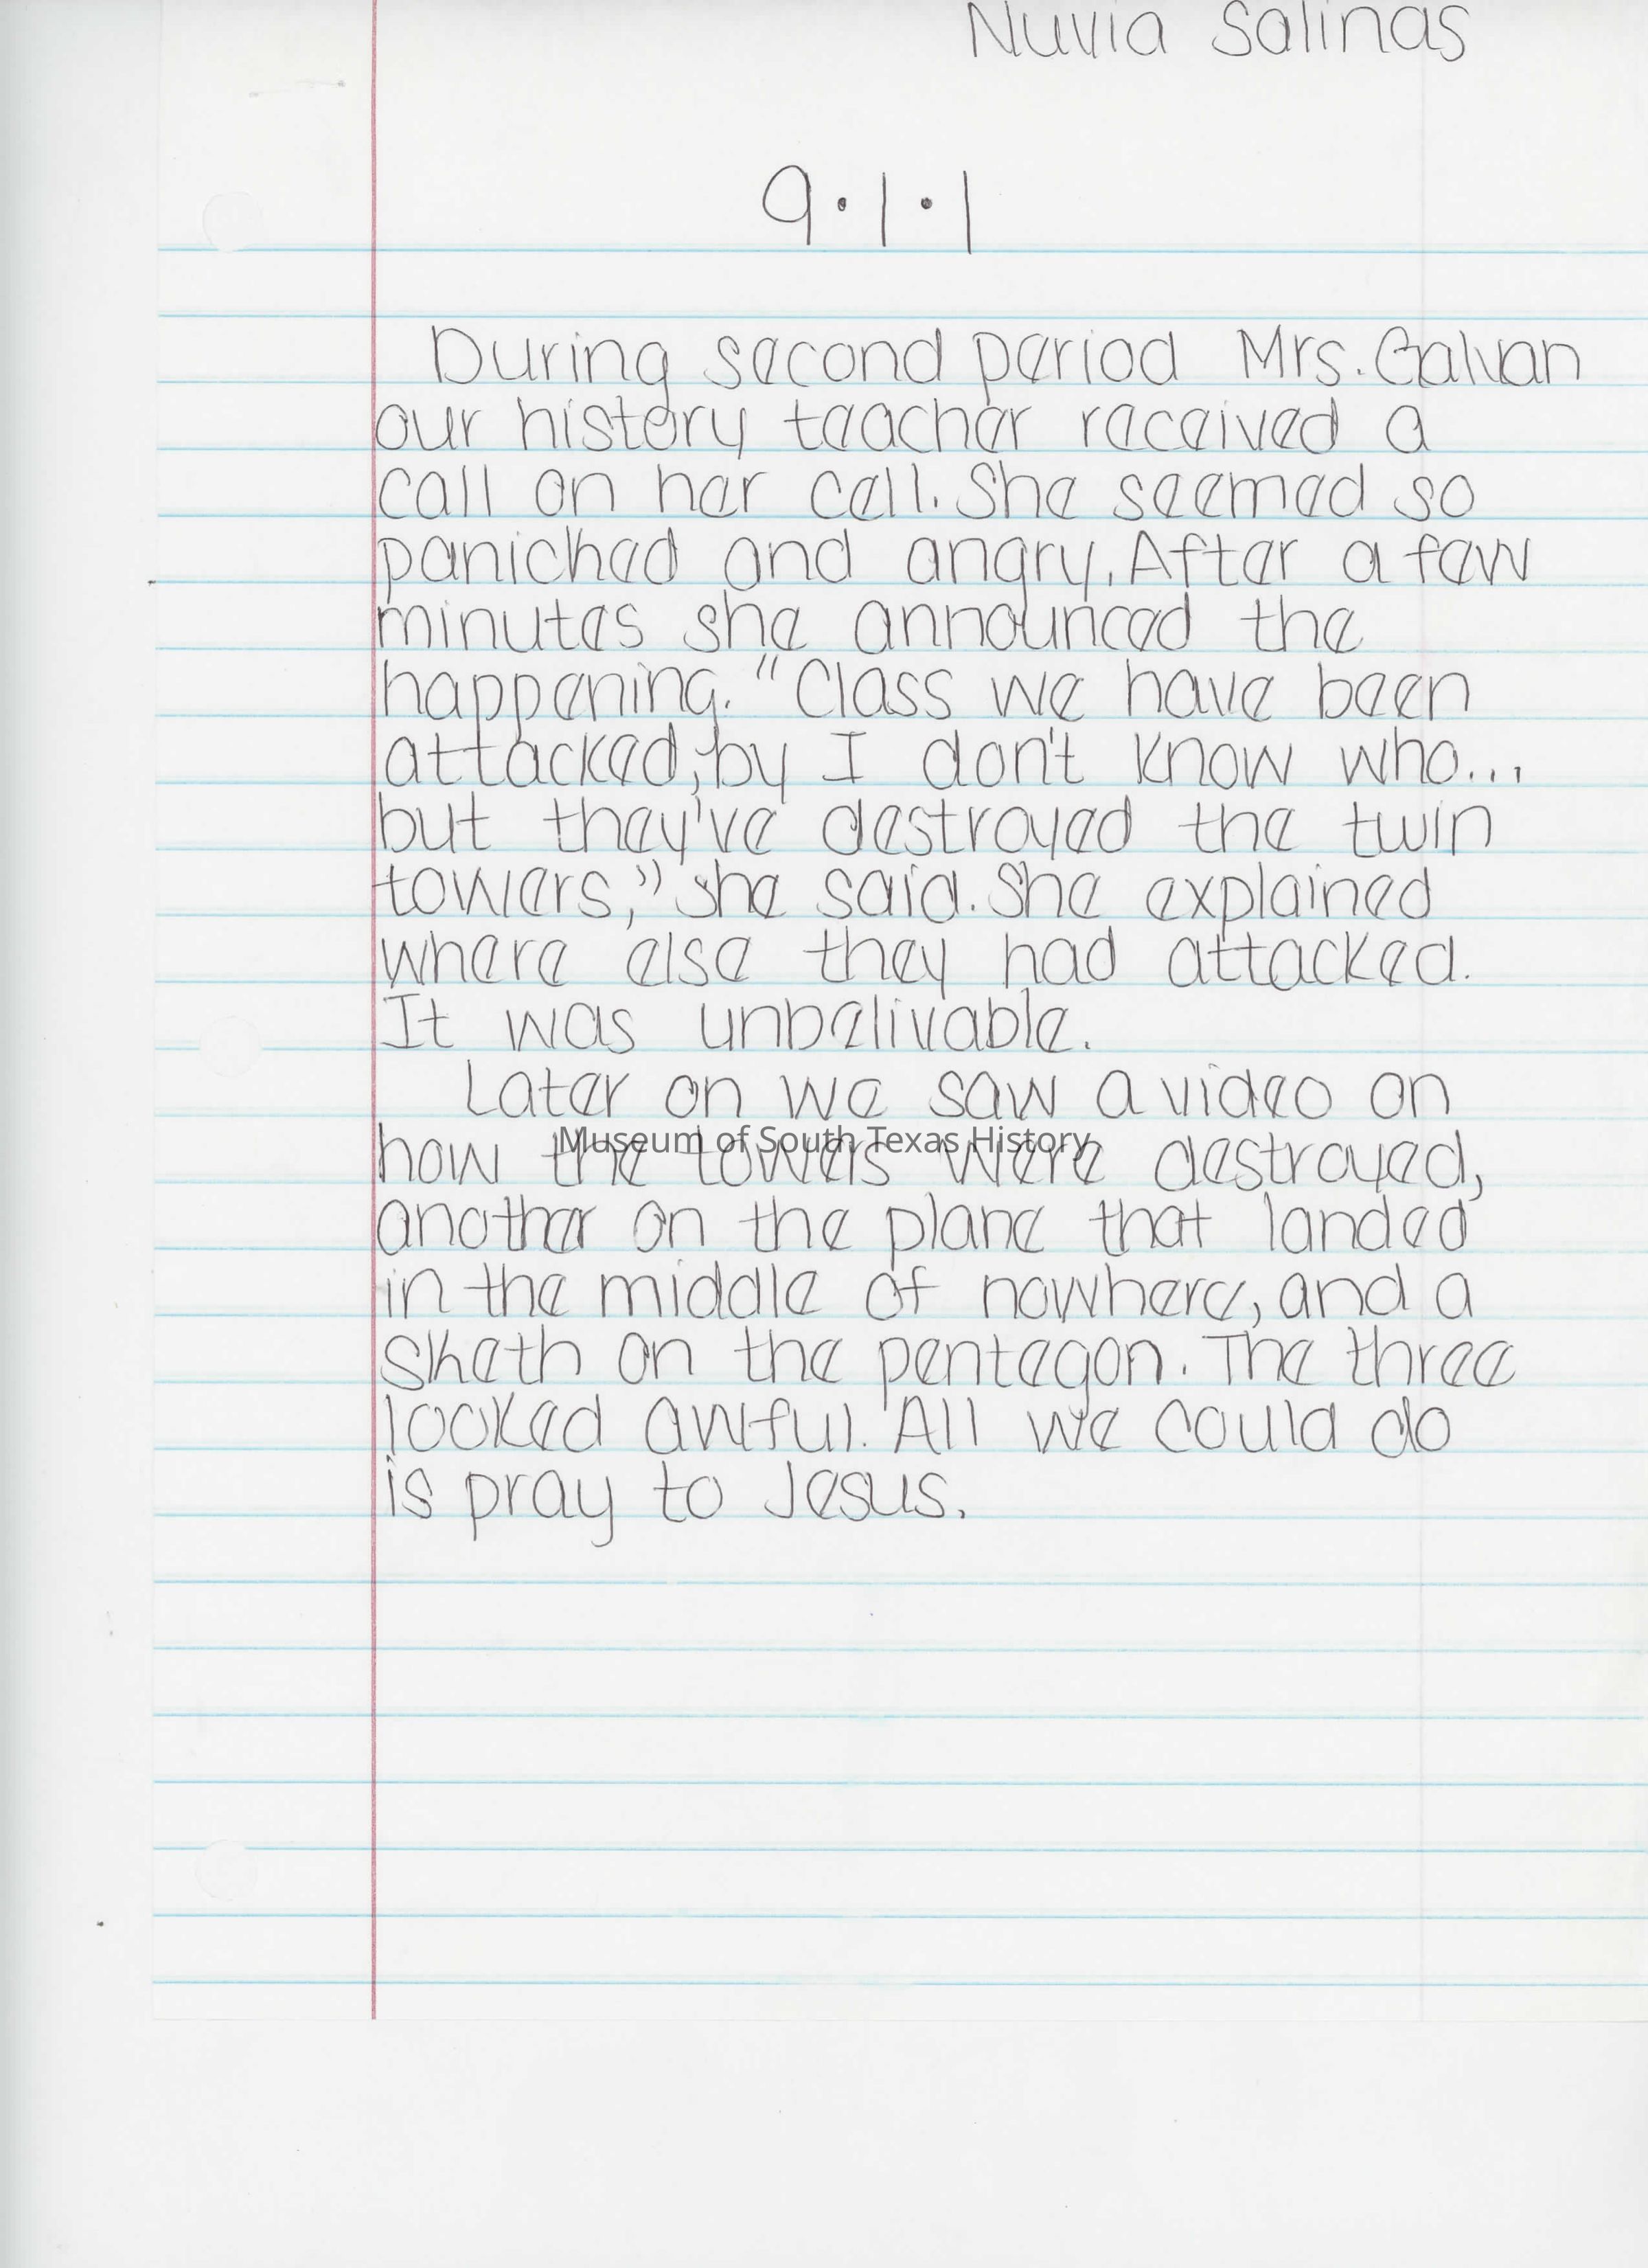 Nuvia Salinas
9·1·1
During second period Mrs. Galvan
our history teacher received a
call on her cell. She seemed so
panicked and angry. After a few
minutes she announced the
happening. "Class we have been
attacked, by I don't know who...
but they've destroyed the twin
towers," she said. She explained
where else they had attacked.
It was unbelivable.
Later on we saw a video on
how the towers were destroyed,
Museum of South Texas History
another on the plane that landed
in the middle of nowhere, and a
sketh on the pentegon. The three
looked awful. All we could do
is pray to Jesus.